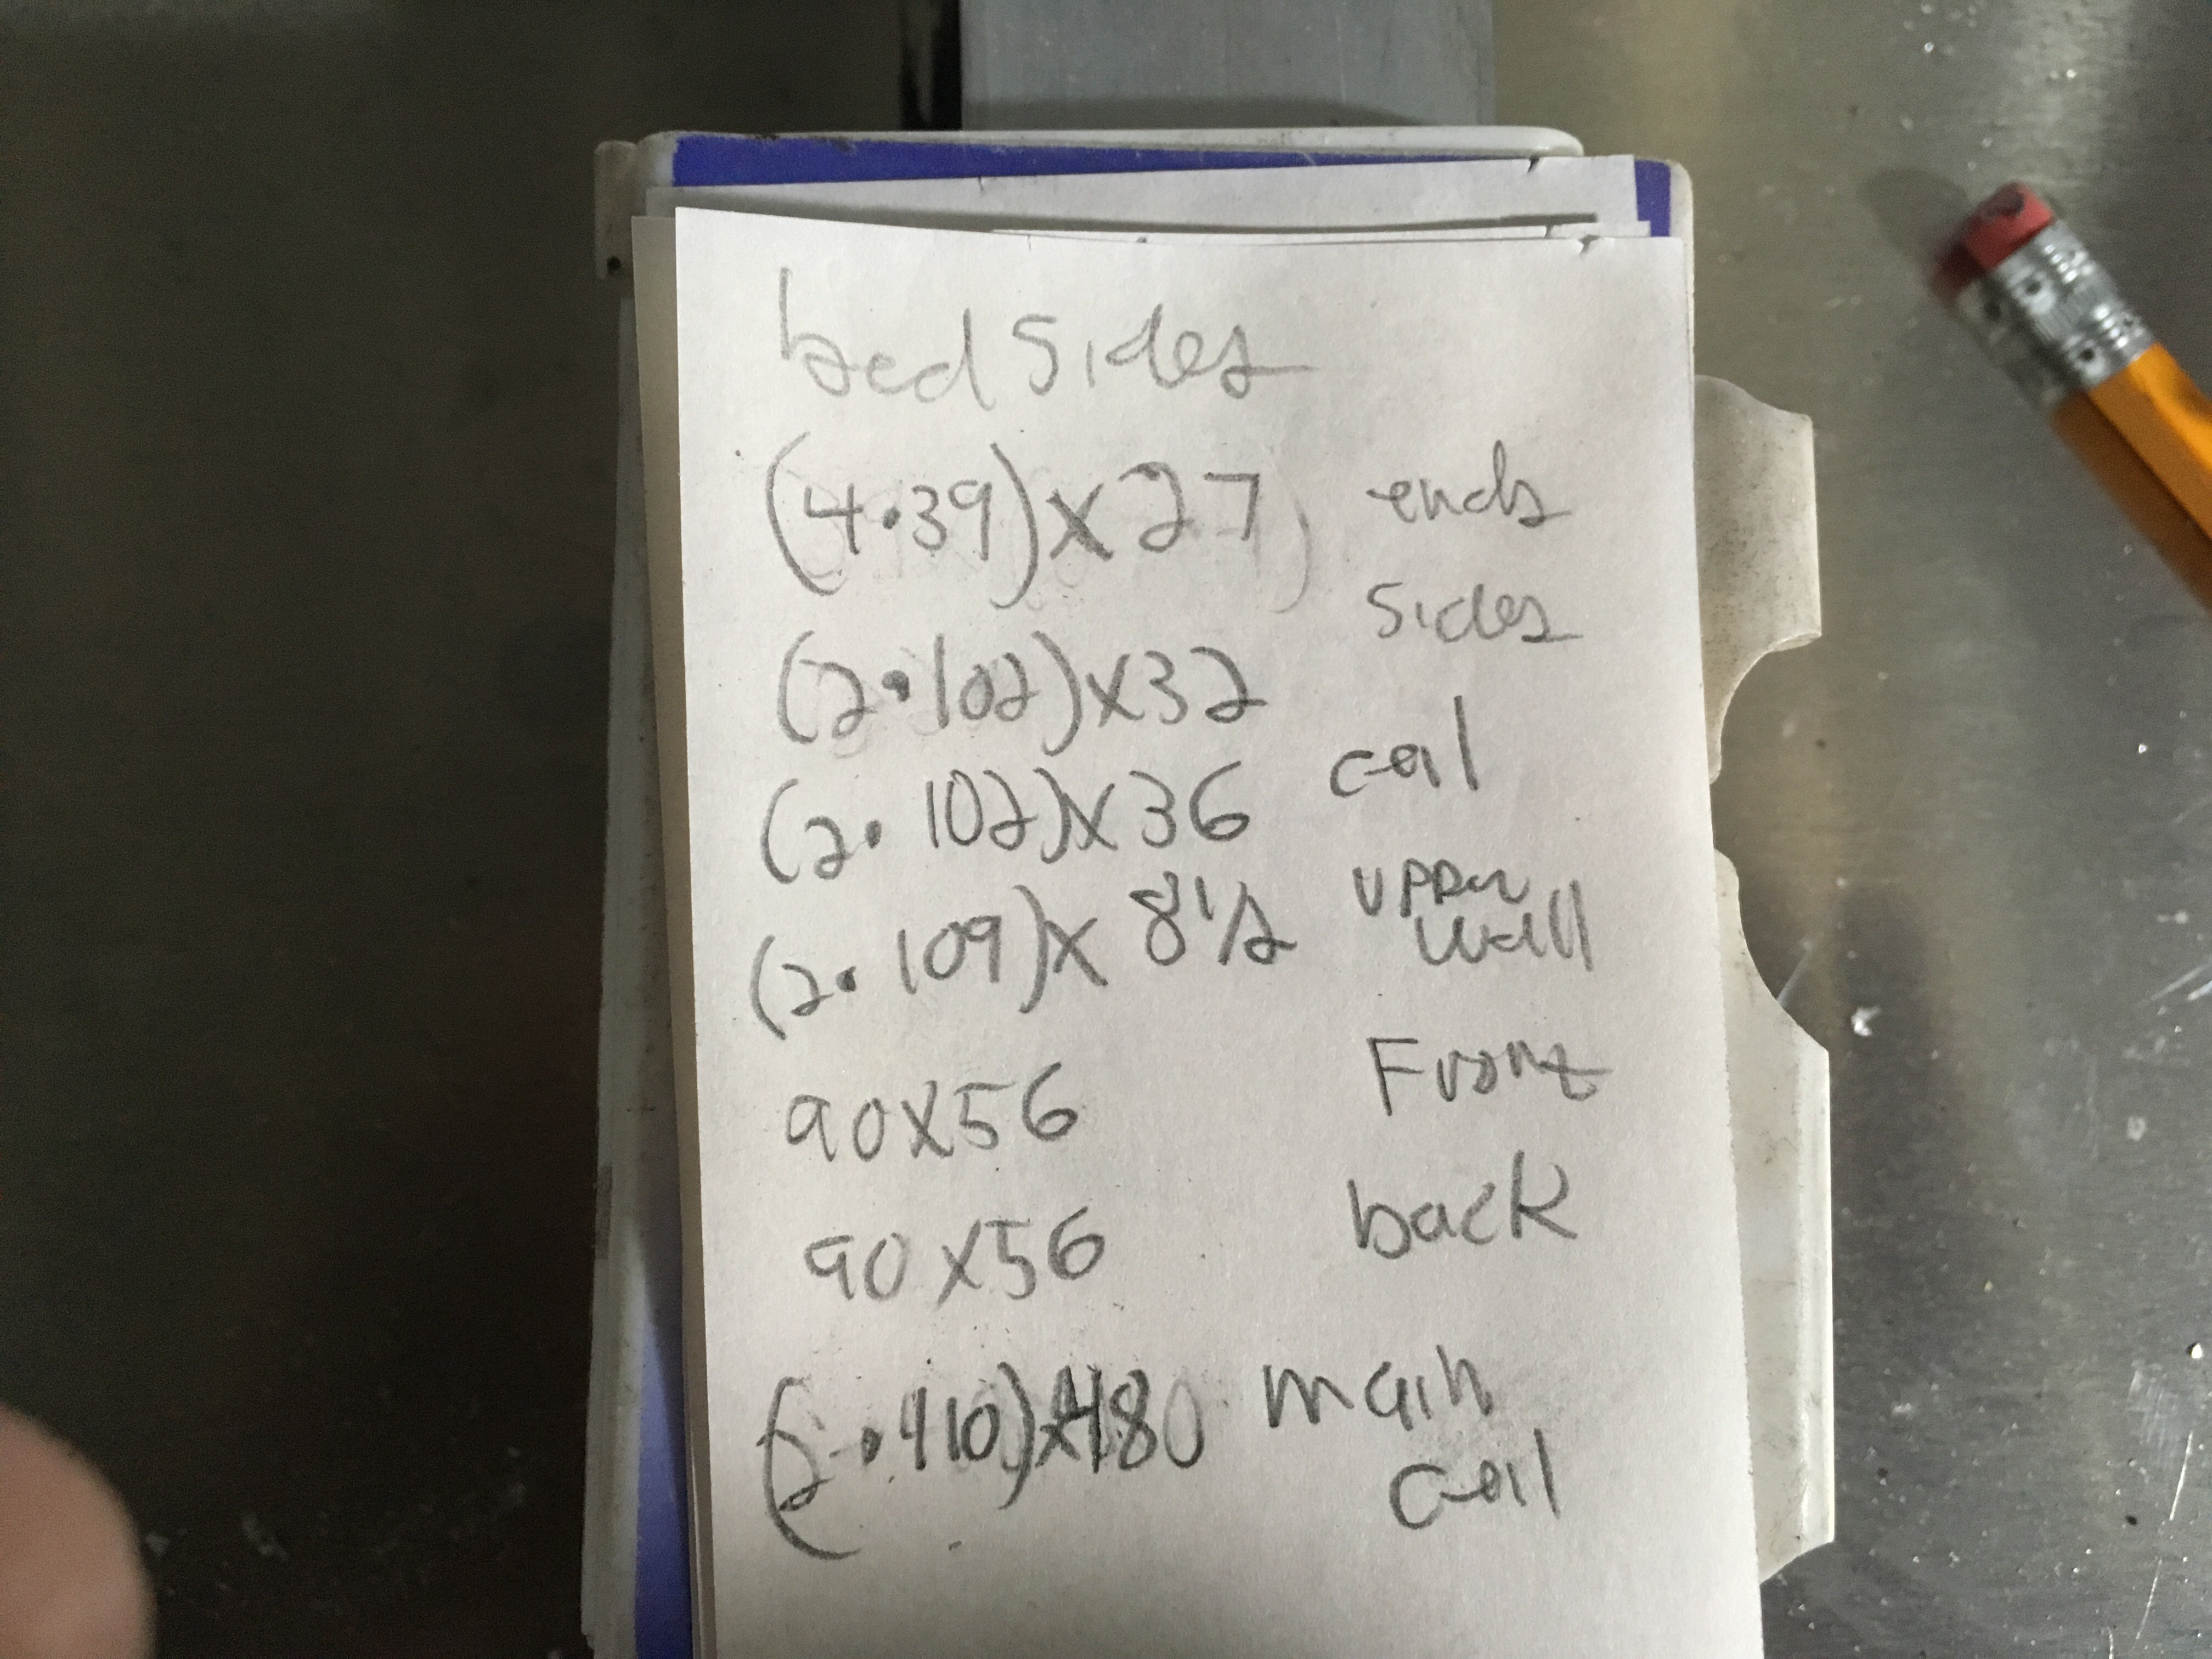 bed Sides
(4•39)x27 ends
Sides
(2•102)x32
(2•102)x36 ceil
(2•109)x 8 1/2 upper
wall
90x56 Front
90x56 back
main
ceil